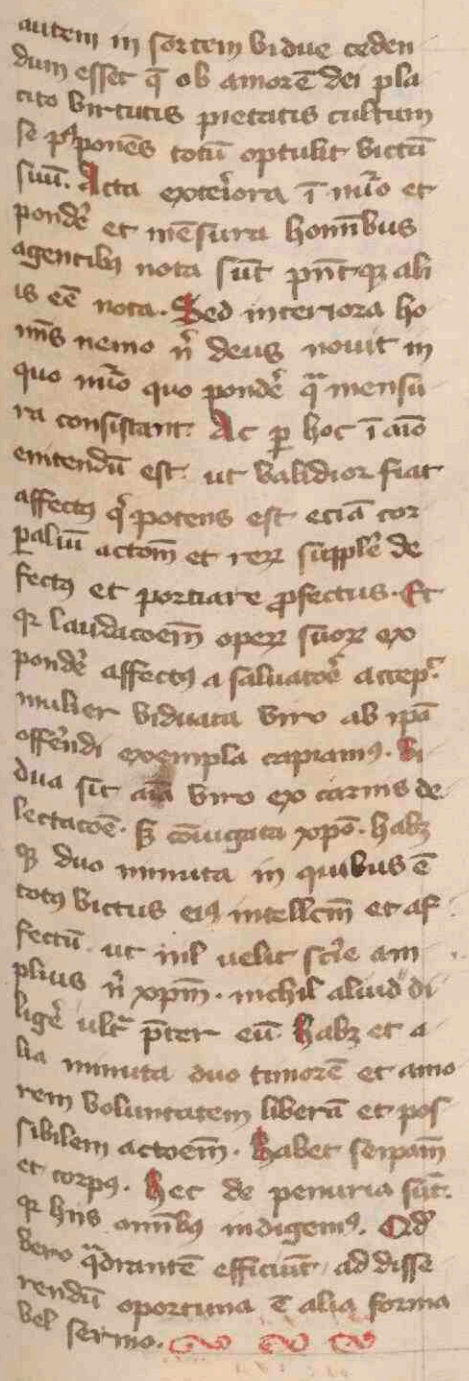 autem in sortem vidue ceden
dum esset q̄ ob amorē dei pla
cito virtutis pietatis cultum
se p̄ponēs totū optulit victū
suū. Acta exteriora ī nūo et
pondē et mēsura hominibus
agentibꝰ nota sūt pn̄tqꝫ ali
is eē nota. Sed interiora ho
mīs nemo n̄ deus novit in
quo nūo quo pondē qᵃ mensu
ra consistant. Ac ꝑ hoc ī aīo
enitendū est ut validior fiat
affectꝰ qͥ potens est eciā cor
ꝑaliū actoīn et reꝝ supplē de
fectꝰ et portare ꝓfectus. Et
qꝛ laudacoem̄ opeꝝ suoꝝ ex
pondē affectꝰ a salvatoē accep̄ᵗ
mulier viduata viro ab ipā
offēndi exempla capiamꝰ. Vi
dua sit aīa viro ex carnis de
lectacōe. sꝫ cōiugata xpō. habꝫ
qꝫ duo minuta in quibus ē
totꝰ victus eiꝰ intellcm̄ et af
fectū. ut nil velit scīe am
plius n̄ xpm̄. nichil aliud di
ligē ultᵃ p̄ter eū. Habꝫ et a
lia minuta duo timorē et amo
rem voluntatem liberā et pos
sibilem actoem̄. Habet serpam̄
et corpꝰ. Hec de penuria sūt.
qꝛ hiis omībꝰ indigemꝰ. Qđ
vero qᵃdrantē efficiūt ad disse
rendū oportuna ē alia forma
vel sermo.